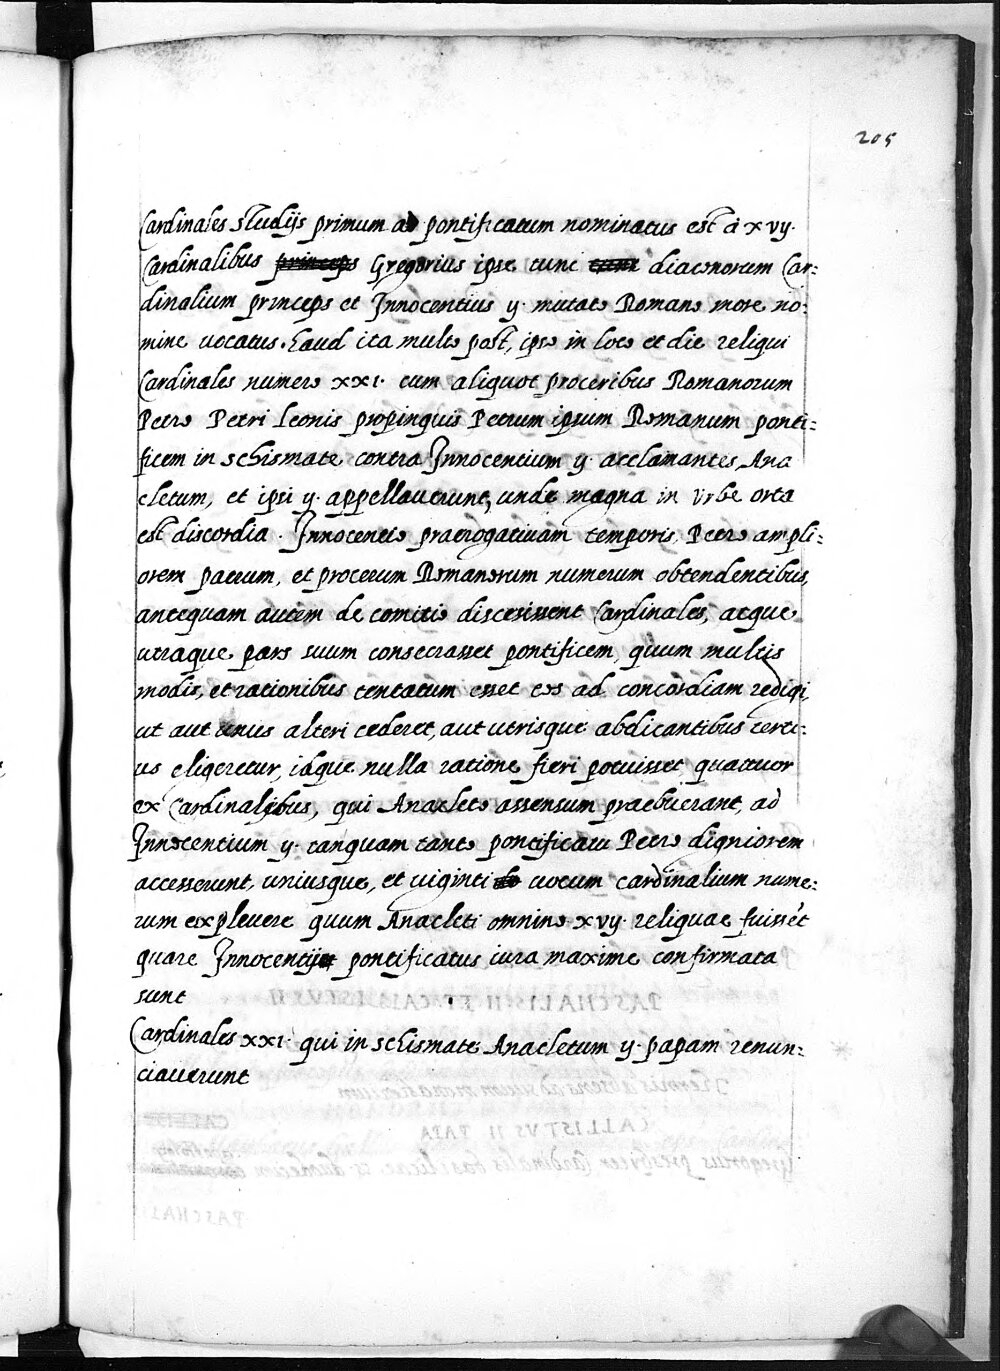 205
Cardinales studijs primum ad pontificatum nominatus est à xvy.
Cardinalibus princeps Gregorius ipse tunc diaconorum Car:
dinalium princeps et Innocentius y. mutato Romano more no:
mine vocatus. haud ita multo post, ipso in loco et die reliqui
Cardinales numero XXI. cum aliquot proceribus Romanorum
Petro Petri Leonis propinquis Petrum ipsum Romanum ponti:
ficem in schismate contra Innocentium y. acclamantes Ana
cletum, et ipsi y. appellauerunt, unde magna in Vrbe orta
est discordia. Innocentio praerogatiuam temporis, Petro ampli:
orem patrum, et procerum Romanorum numerum obtendentibus,
antequam autem de comitio discesissent Cardinales, atque
utraque pars suum consecrasset pontificem, quum multis
modis, et rationibus tentatum esset eos ad concordiam redigi,
ut aut unus alteri cederet, aut utrisque abdicantibus terti:
us eligeretur, idque nulla ratione fieri potuisset quattuor
ex Cardinalibus, qui Anacleto assensum praebuerant, ad
Innocentium y. tanquam tanto pontificatu Petro digniorem
accesserunt, uniusque, et uiginti uocum cardinalium nume:
rum expleuere quum Anacleti omnino xvy. reliquae fuissēt
quare Innocentij pontificatus iura maxime confirmata
sunt
Cardinales XXI. qui in schismate Anacletum y. papam renun:
ciauerunt